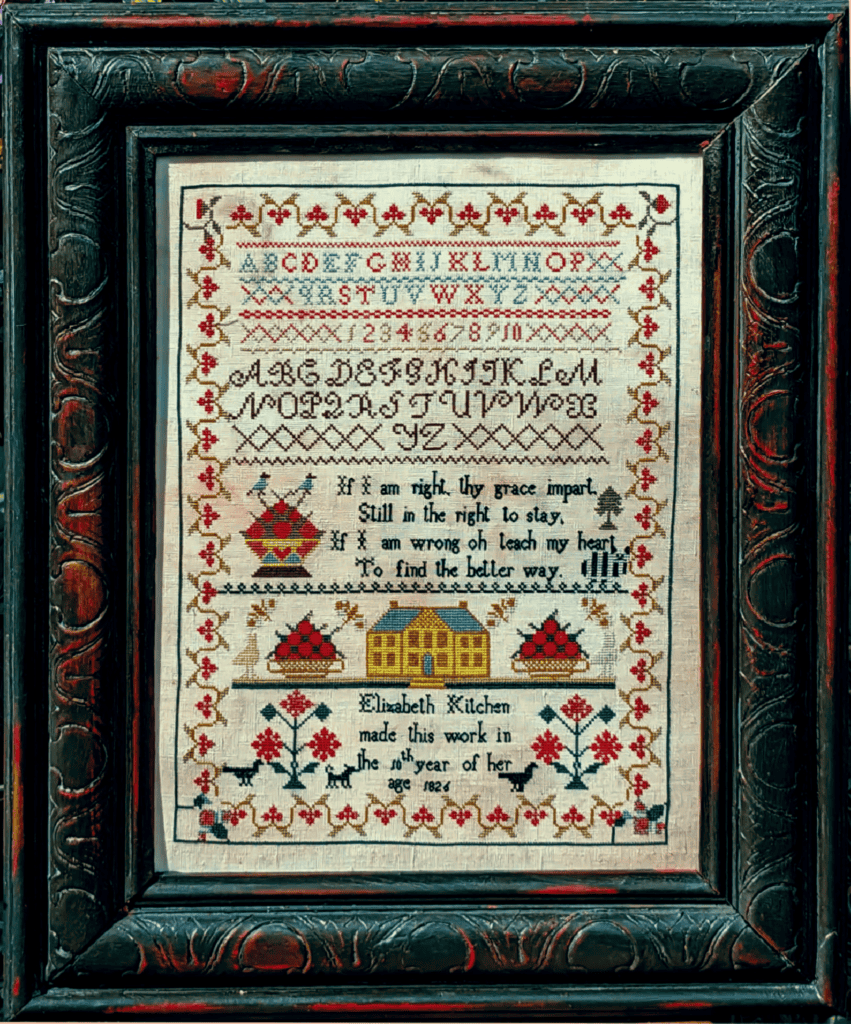 ABCDEFGHIJKLMNOPXX
XXQRSTUVWXYZXXXX
XXXXX12345678910XXXX
ABCDEFGHIJKLM
NOPQRSTUVWX
XXXXXX YZ XXXXXX
If I am right, thy grace impart,
Still in the right to stay,
If I am wrong oh teach my heart
To find the better way.
Elizabeth Kitchen
made this work in
the 10th year of her
age 1826